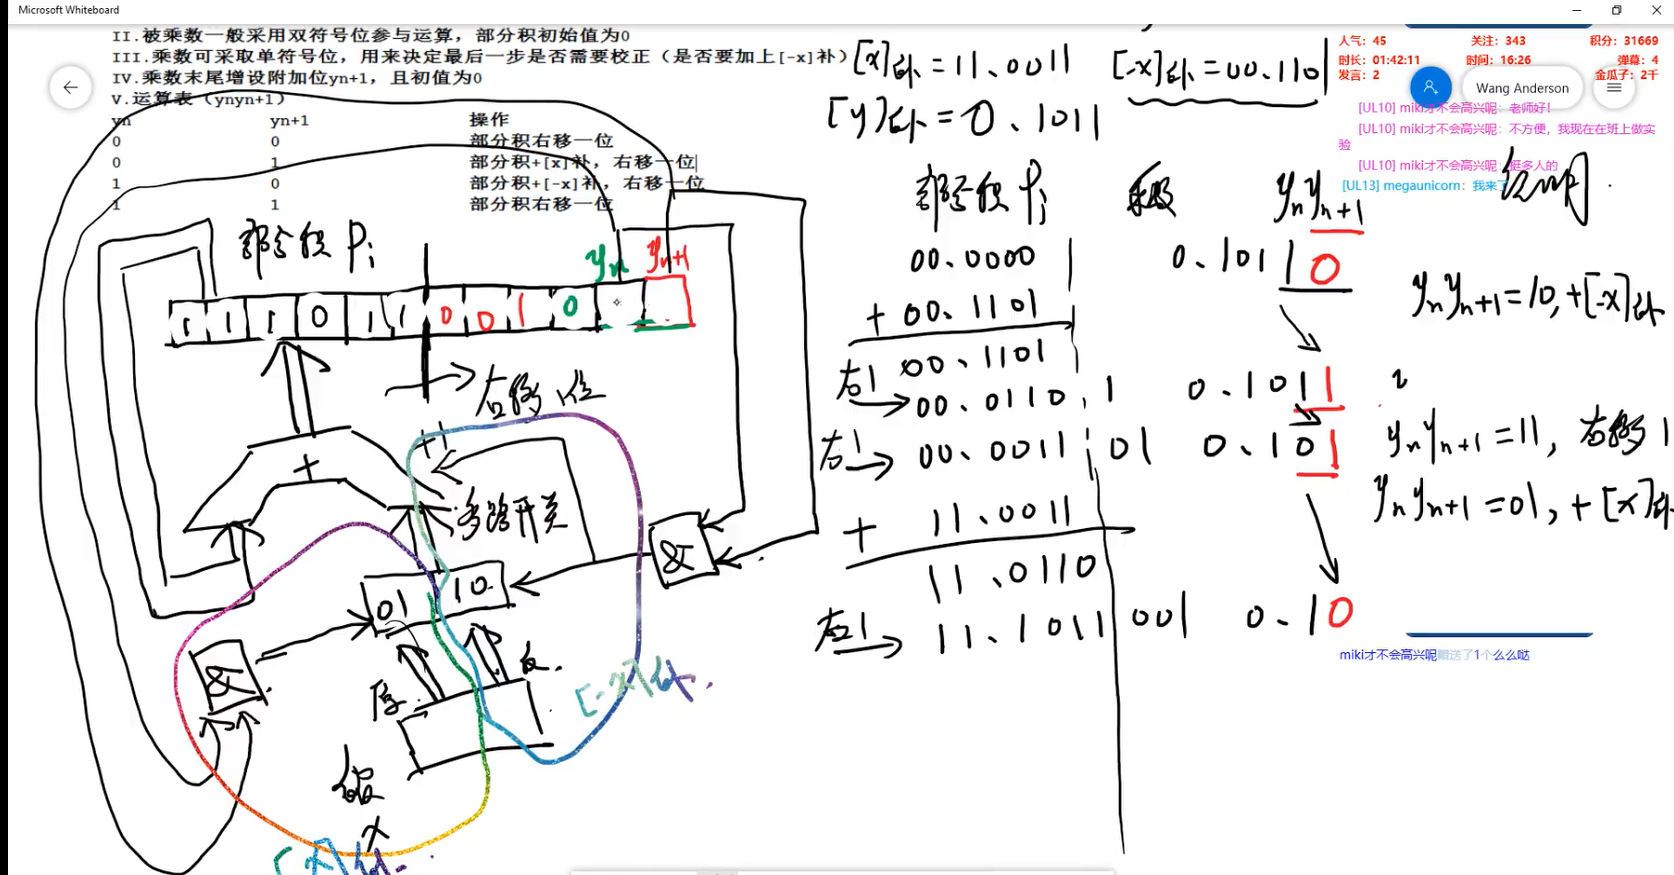 Microsoft Whiteboard
II.被乘数一般采用双符号位参与运算，部分积初始值为0
III.乘数可采取单符号位，用来决定最后一步是否需要校正（是否要加上[-x]补）
IV.乘数末尾增设附加位yn+1，且初值为0
V.运算表（ynyn+1）
yn yn+1 操作
0 0 部分积右移一位
0 1 部分积+[x]补，右移一位
1 0 部分积+[-x]补，右移一位
1 1 部分积右移一位
部分积 Pi
yn yn+1
1 1 1 0 1 1 0 0 1 0
右移1位
+
+1
多路开关
&
01 10
&
原 反
[-x]补
x
[x]补
[x]补=11.0011 [-x]补=00.1101
[y]补=0.1011
部分积 Pi yn yn+1 说明
00.0000 0.10110
+ 00.1101 ynyn+1=10,+[-x]补
00.1101
右1 00.0110 1 0.1011
ynyn+1=11, 右移1
右1 00.0011 01 0.101
ynyn+1=01,+[x]补
+ 11.0011
11.0110
右1 11.1011 001 0.10
人气: 45 关注: 343 积分: 31669
时长: 01:42:11 时间: 16:26 弹幕: 4
发言: 2 金瓜子: 2千
Wang Anderson
[UL10] miki才不会高兴呢: 老师好!
[UL10] miki才不会高兴呢: 不方便，我现在在班上做实验
[UL10] miki才不会高兴呢: 挺多人的
[UL13] megaunicorn: 我来了
miki才不会高兴呢赠送了1个么么哒